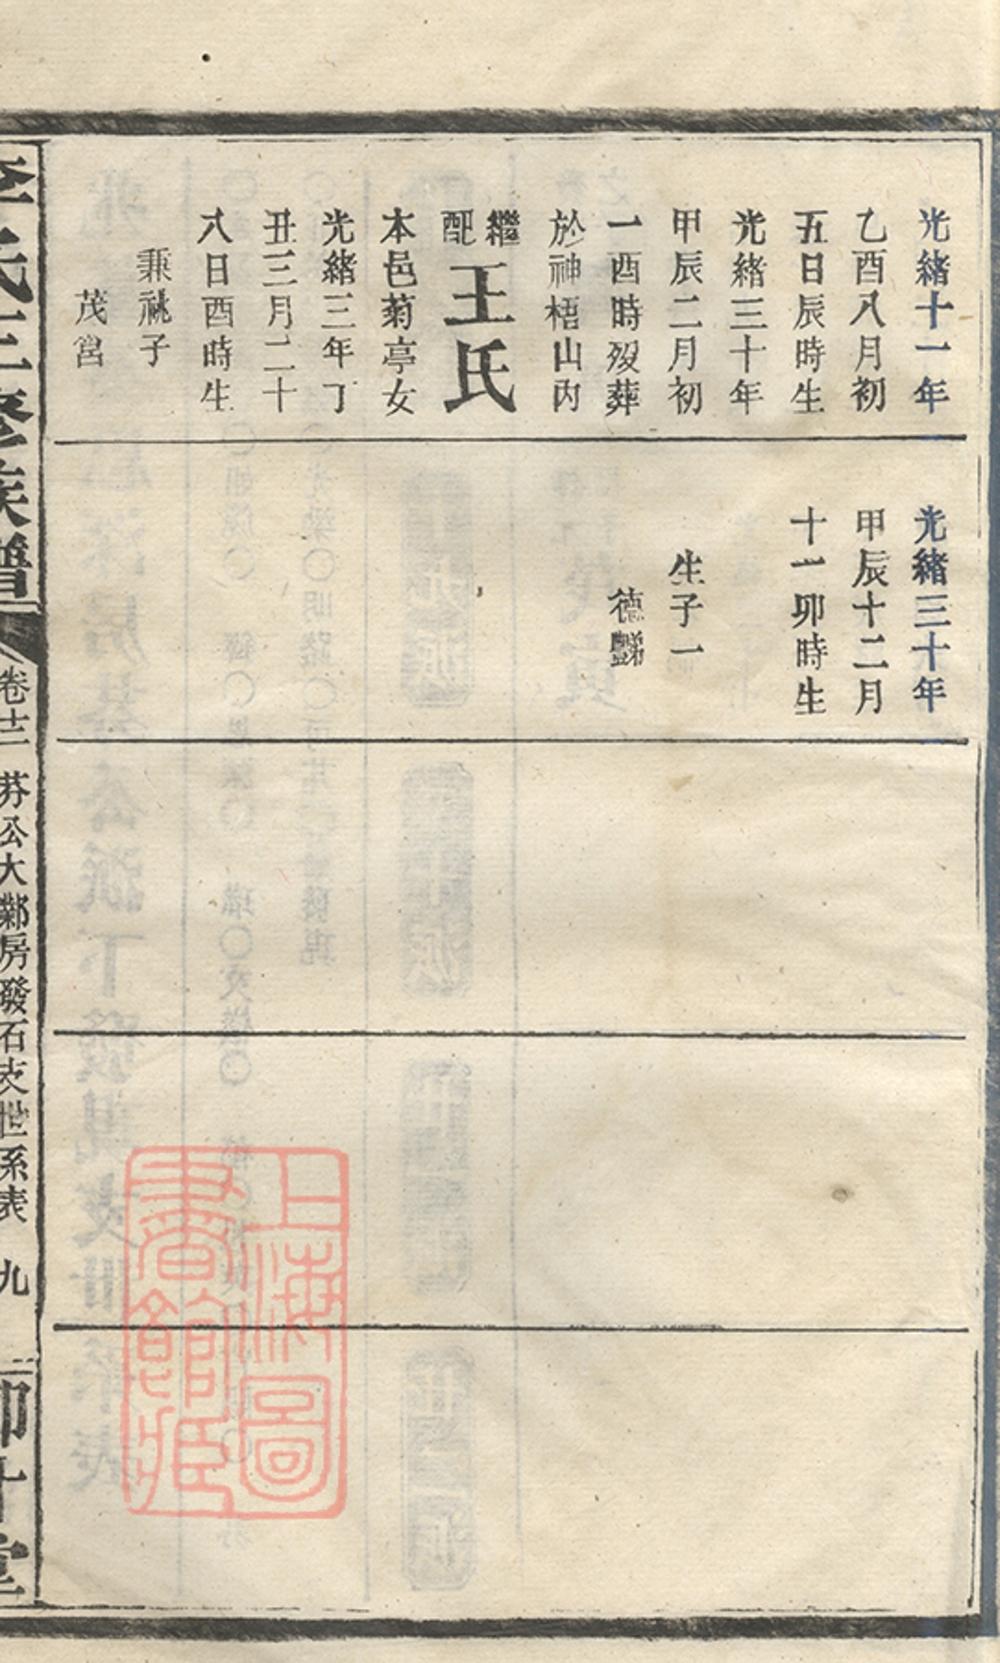 光緒十一年
乙酉八月初
五日辰時生
光緒三十年
甲辰二月初
一酉時歿葬
於神梧山內
繼配王氏
本邑菊亭女
光緒三年丁
丑三月二十
八日酉時生
兼祧子
茂営
光緒三十年
甲辰十二月
十一卯時生
生子一
德
李氏三修族譜
卷十二
芬公大鄴房發石支世系表
九
上海圖
書館藏